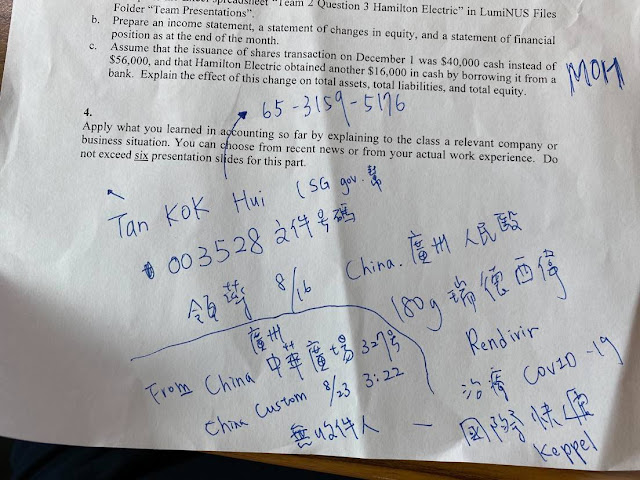 Spreadsheet "Team 2 Question 3 Hamilton Electric" in LumiNUS Files
Folder "Team Presentations".
b. Prepare an income statement, a statement of changes in equity, and a statement of financial
position as at the end of the month.
c. Assume that the issuance of shares transaction on December 1 was $40,000 cash instead of
$56,000, and that Hamilton Electric obtained another $16,000 in cash by borrowing it from a
bank. Explain the effect of this change on total assets, total liabilities, and total equity.
MOH
65-3159-5176
4.
Apply what you learned in accounting so far by explaining to the class a relevant company or
business situation. You can choose from recent news or from your actual work experience. Do
not exceed six presentation slides for this part.
Tan KOK Hui (SG gov.
003528 文件号碼
8/16
China. 廣州 人民
180g 瑞德西韋
Rendivir
治療 COVID-19
國際 快遞
Keppel
廣州
From China 中華廣場 327号
China Custom 8/23 3:22
無收件人 —